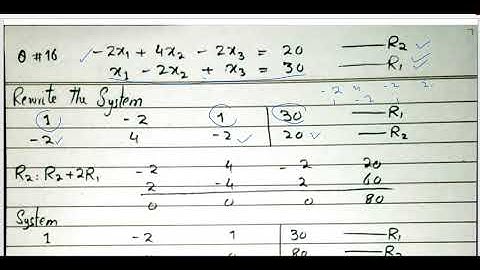 Q #16 -2x₁ + 4x₂ - 2x₃ = 20 —— R₂
x₁ - 2x₂ + x₃ = 30 —— R₁
Rewrite the System
1 -2 1 30 —— R₁
-2 4 -2 20 —— R₂
R₂: R₂ + 2R₁ -2 4 -2 20
2 -4 2 60
0 0 0 80
System
1 -2 1 30 —— R₁
80 —— R₂